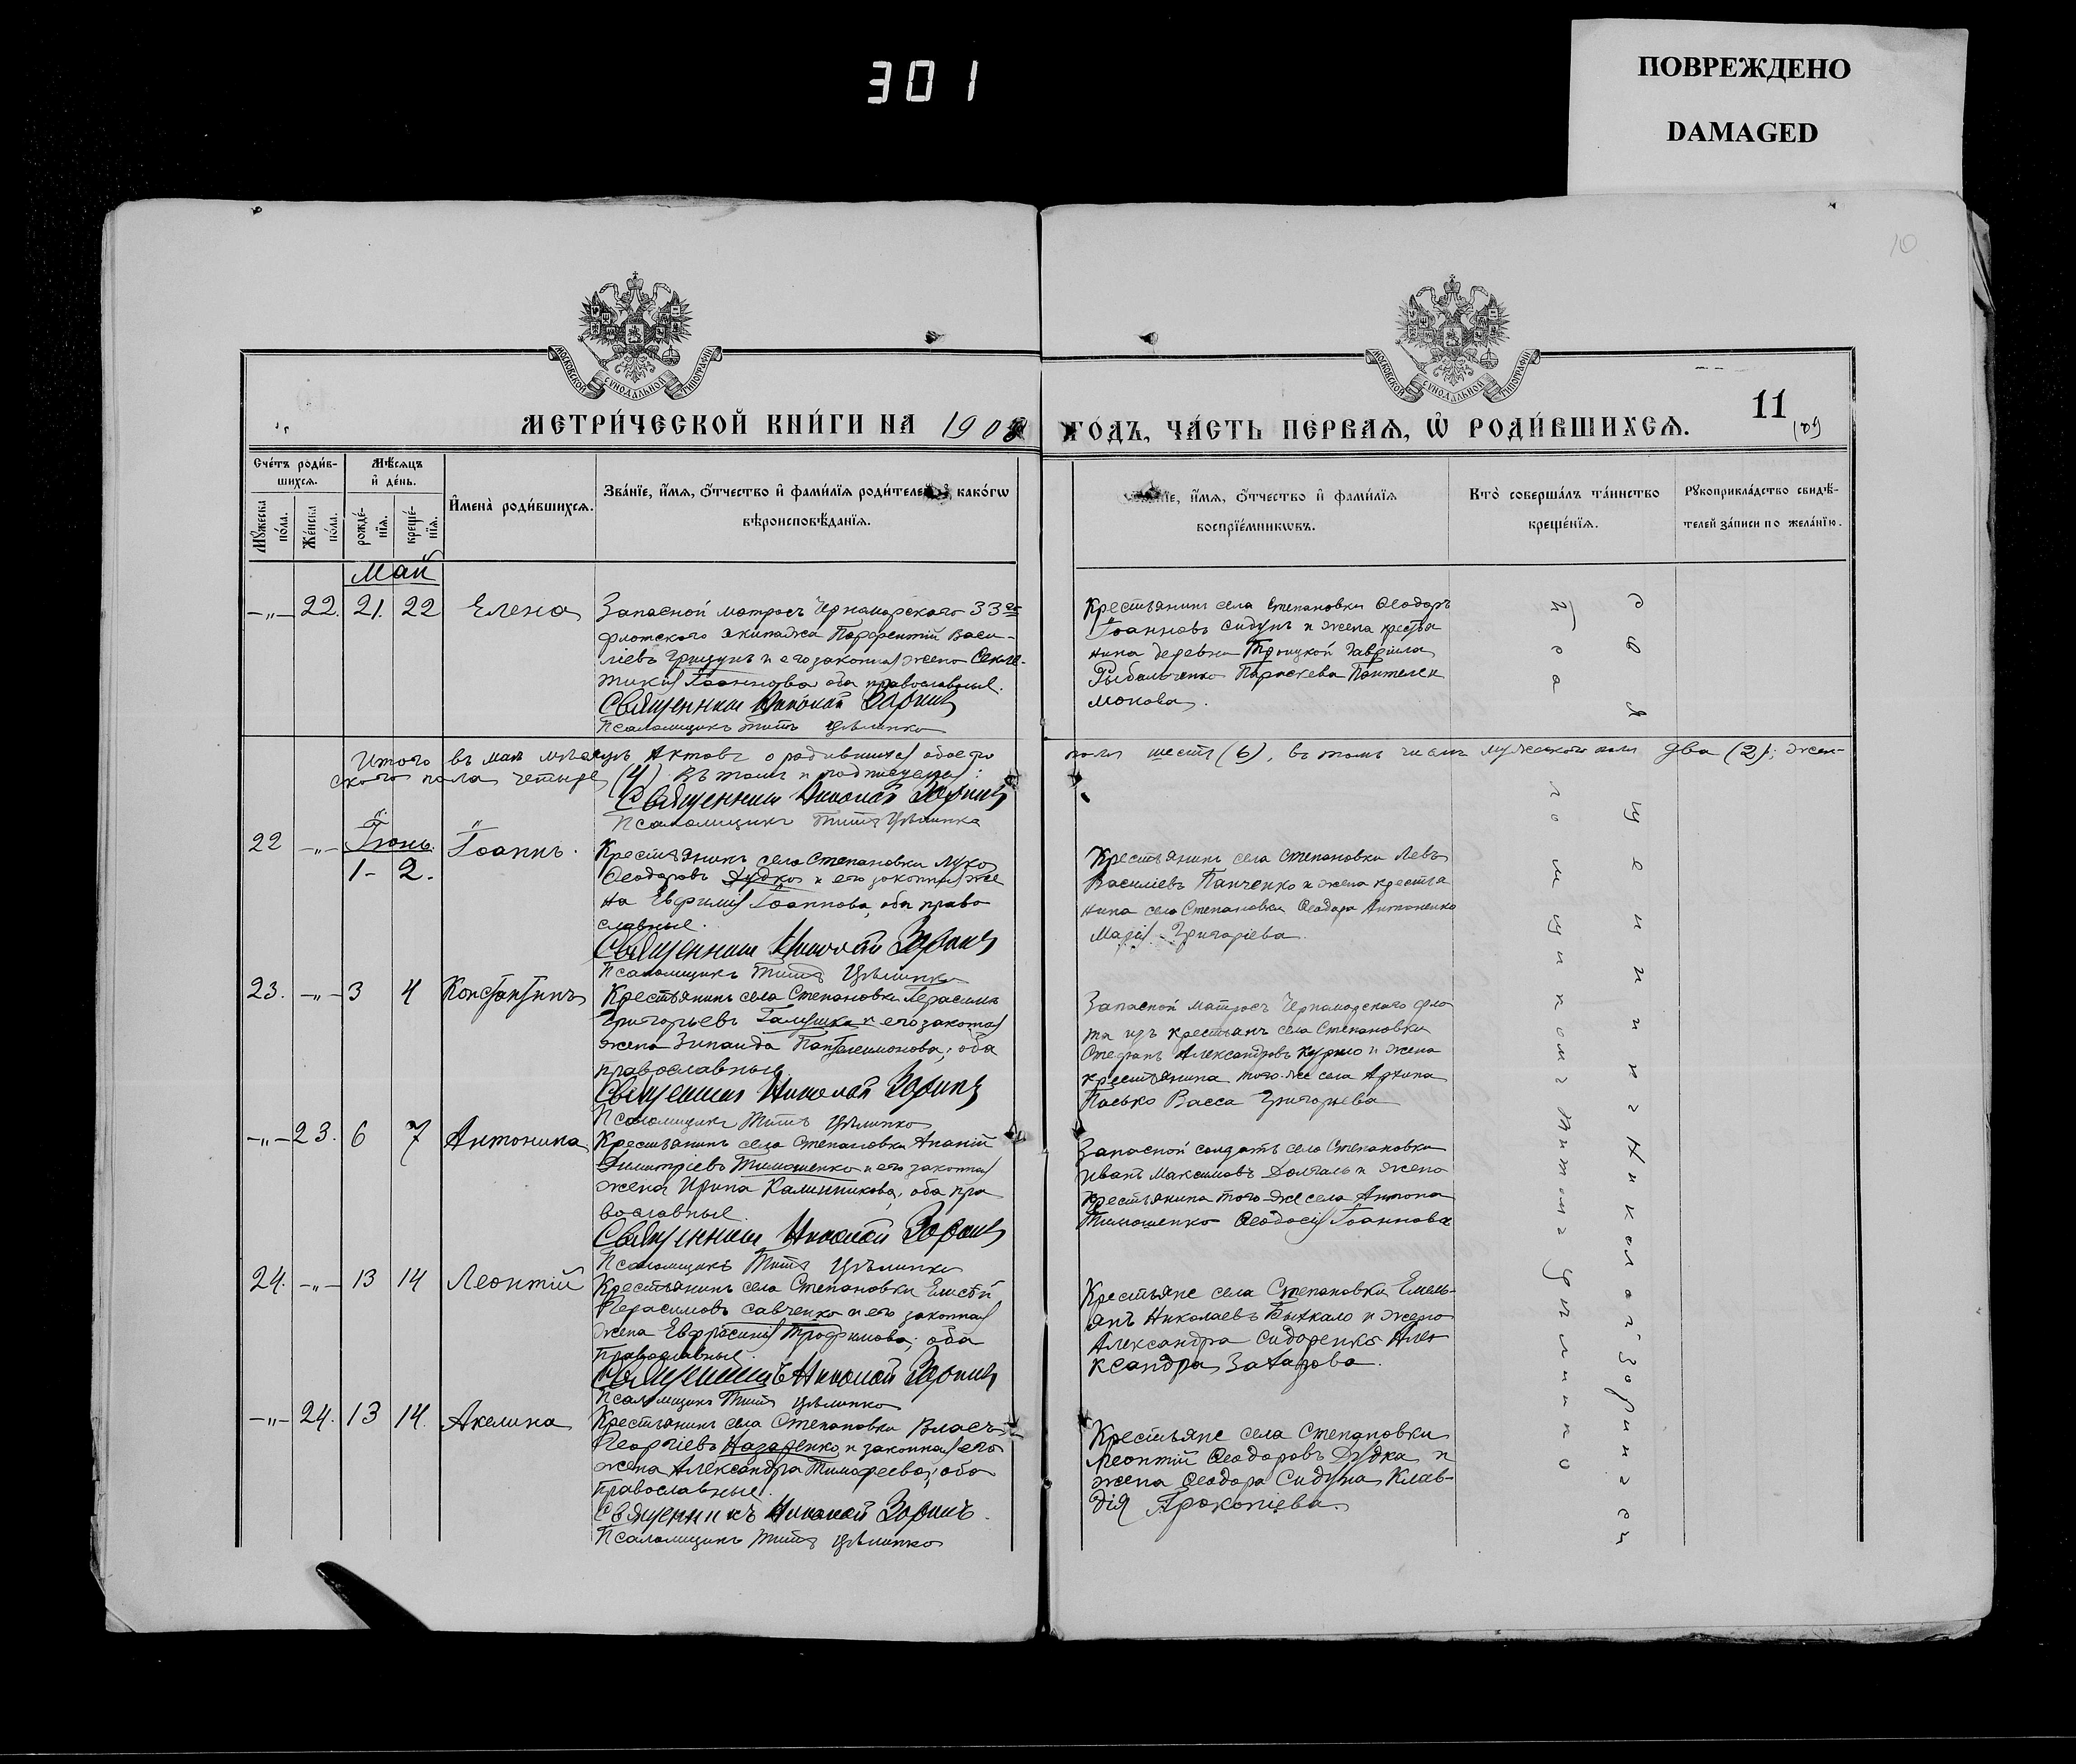 301
ПОВРЕЖДЕНО
DAMAGED
10
МОСКОВСКОЙ СѴНОДАЛЬНОЙ ТИПОГРАФІИ
МОСКОВСКОЙ СѴНОДАЛЬНОЙ ТИПОГРАФІИ
МЕТРИ́ЧЕСКОЙ КНИ́ГИ НА 1908
ГО́ДЪ, ЧА́СТЬ ПЕ́РВАѦ, Ѿ РОДИ́ВШИХСѦ.
11
Сче́тъ роди́в-
шихсѧ.
Мѣ́сѧцъ
и҆ де́нь.
Мꙋ́жеска
по́ла.
Же́нска
по́ла.
рожде́-
нїѧ.
креще́-
нїѧ.
И҆мена̀ роди́вшихсѧ.
Зва́нїе, и҆́мѧ, ѻ҆́тчество и҆ фами́лїѧ роди́телей, како́гѡ
вѣроисповѣ́данїѧ.
и҆́мѧ, ѻ҆́тчество и҆ фами́лїѧ
воспрїе́мникѡвъ.
Кто̀ соверша́лъ та́инство
креще́нїѧ.
Рꙋкоприкла́дство свидѣ́-
телей за́писи по жела́нїю.
Май
-"- 22. 21. 22 Елена
Запасной матросъ Черноморского 33го
флотского экипажа Парфентій Васи-
ліевъ Грицунъ и его законная жена Секле-
тикія Іоаннова оба православные.
Священникъ Николай Зоринъ
Псаломщикъ Титъ Цѣлинко
Крестьянинъ села Степановки Ѳеодоръ
Іоанновъ Сидунъ и жена крестья
нина деревни Троицкой Гавріила
Рыбальченко Параскева Пантелеи
монова.
Итого въ маѣ мѣсяцѣ актовъ о родившихся обоего
пола шесть (6), въ томъ числѣ мужеского пола два (2); жен-
ского пола четыре (4). Въ томъ и подписуемся:
Священникъ Николай Зоринъ
Псаломщикъ Титъ Цѣлинко
Іюнь.
22 -"- 1- 2. Іоаннъ.
Крестьянинъ села Степановки Лука
Ѳеодоровъ Дудка и его законная же
на Евфимія Іоаннова, оба право
славные.
Священникъ Николай Зоринъ
Псаломщикъ Титъ Цѣлинко
Крестьянинъ села Степановки Левъ
Василіевъ Панченко и жена крестья
нина села Степановки Ѳеодора Антоненко
Марія Григоріева.
23. -"- 3 4 Константинъ
Крестьянинъ села Степановки Герасимъ
Григорьевъ Галушка и его законная
жена Зинаида Пантелеимонова; оба
православные.
Священникъ Николай Зоринъ
Псаломщикъ Титъ Цѣлинко
Запасной матросъ Черноморского фло
та изъ крестьянъ села Степановки
Стефанъ Александровъ Курило и жена
крестьянина того-же села Архипа
Пасько Васса Григорьева
-"- 23. 6 7 Антонина
Крестьянинъ села Степановки Ананій
Димитріевъ Тимошенко и его законная
жена Ирина Калинникова; оба пра
вославные
Священникъ Николай Зоринъ
Псаломщикъ Титъ Цѣлинко
Запасной солдатъ села Степановки
Иванъ Максимовъ Долгаль и жена
крестьянина того-же села Антона
Тимошенко Ѳеодосія Іоаннова
24. -"- 13 14 Леонтій
Крестьянинъ села Степановки
Герасимовъ Савченко и его законная
жена Евфросинія Трофимова; оба
православные.
Священникъ Николай Зоринъ
Псаломщикъ Титъ Цѣлинко
Крестьяне села Степановки Емель-
янъ Николаевъ и жена
Александра Сидоренко Але
ксандра Захарова.
-"- 24. 13 14. Акилина
Крестьянинъ села Степановки Власъ
Георгіевъ Назаренко и законная его
жена Александра Тимофеева; оба
православные.
Священникъ Николай Зоринъ.
Псаломщикъ Титъ Цѣлинко
Крестьяне села Степановки
Леонтій Ѳеодоровъ Дудка и
жена Ѳеодора Сидуна Клав-
дія Прокопіева.
Священникъ Николай Зоринъ съ
псаломщикомъ Титомъ Цѣлинко